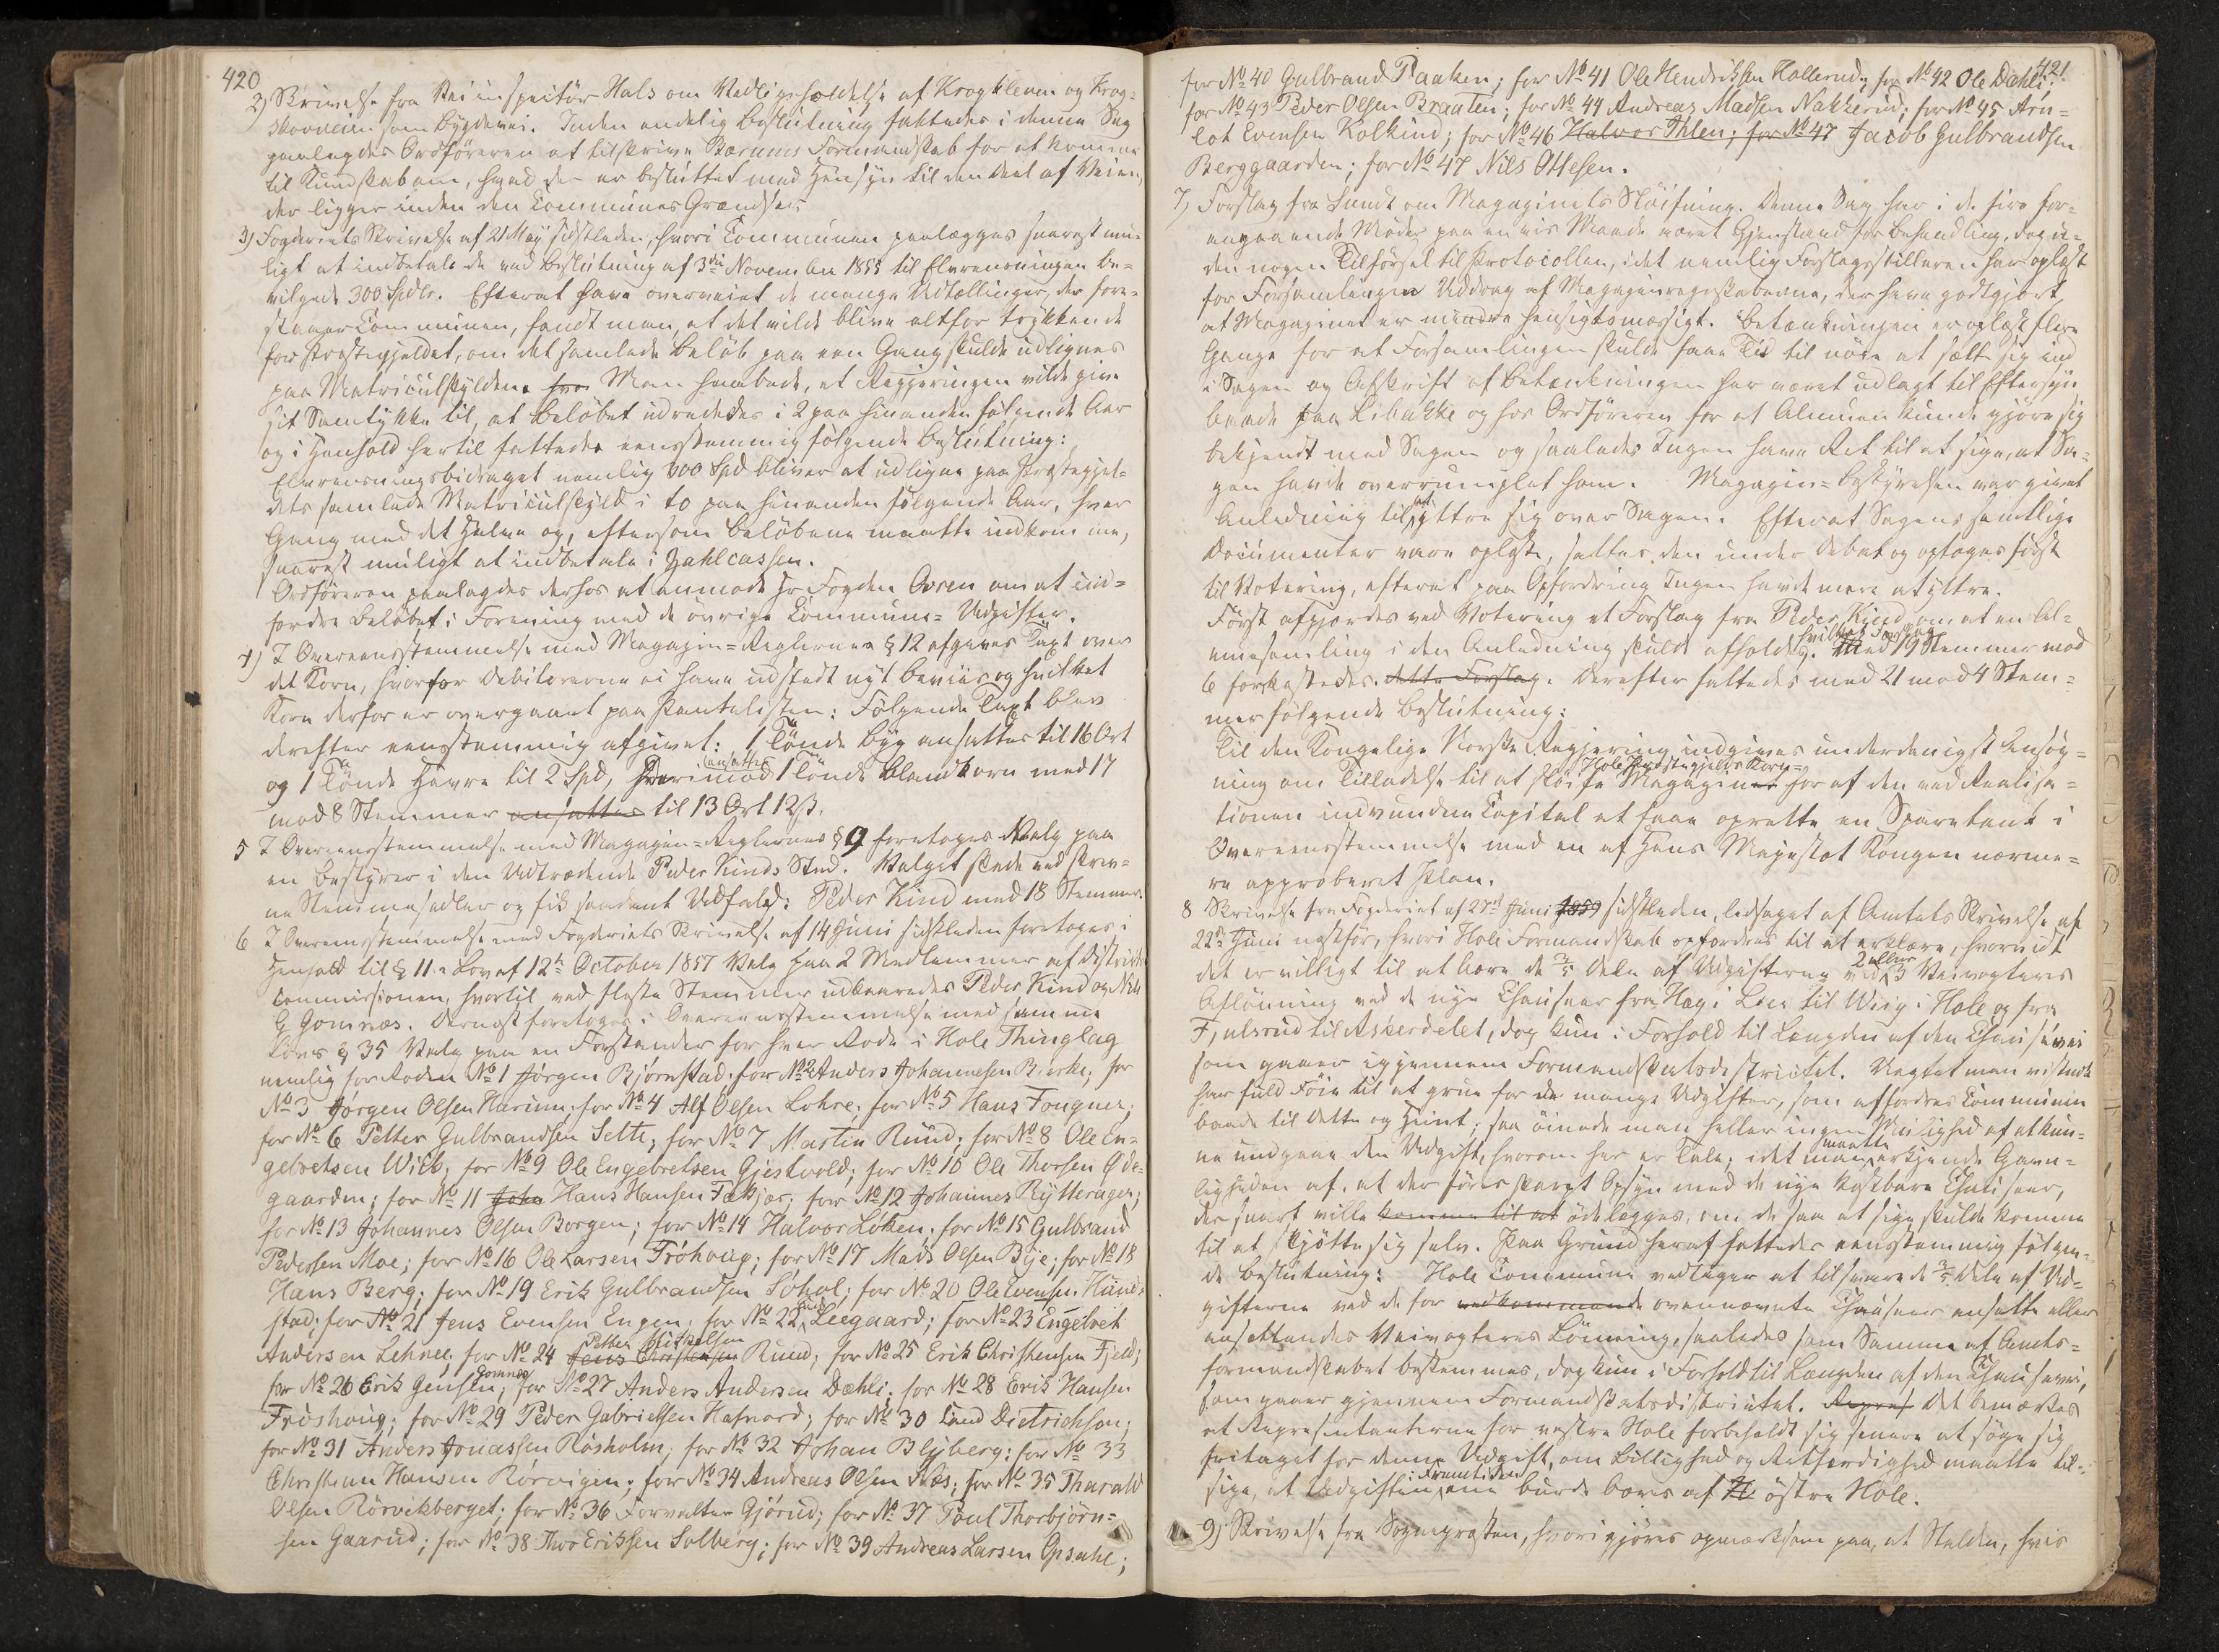 420
2) Skrivelse fra Veiinspectör Hals om Vedligeholdelse af Krogkleven og Krog-
skovveien som Bygdevei. Inden endelig Beslutning fattedes i denne Sag
paalagdes Ordföreren at tilskrive Bærums Formandskab for at komme
til Kundskab om, hvad der er besluttet med Hensyn til den Deel af Veien,
der ligger inden den Communes Grændser.
3) Fogderiets Skrivelse af 21 May sidstleden, hvori Communen paalægges snarest mu-
ligt at indbetale de ved Beslutning af 3die November 1855 til Elverensningen be-
vilgede 300 Spdlr. Efterat have overveiet de mange Udtællinger, der fore-
staaer Communen, fandt man, at det vilde blive altfor trykkende
for Præstegjeldet, om det samlede Beløb paa een Gang skulde udlignes
paa Matriculskylden. Man haabede, at Regjeringen vilde give
sit Samtykke til, at Beløbet udrededes i 2 paa hinanden følgende Aar
og i Henhold hertil fattedes eenstemmig følgende Beslutning:
Elverensningsbidraget nemlig 300 Spd bliver at udligne paa Præstegjel-
dets samlede Matriculskyld i to paa hinanden følgende Aar, hver
Gang med det Halve og, eftersom Beløbene maatte indkomme,
snarest muligt at indbetale i Zahlcassen.
Ordföreren paalagdes derhos at anmode Hr Fogden Ovren om at ind-
fordre Beløbet i Forening med de övrige Commune-Udgifter.
4) I Overeensstemmelse med Magazin-Reglernes § 12 afgaves Taxt over
det Korn, hvorfor Debitorerne ei have udstedt nyt Beviis og hvilket
Korn derfor er overgaaet paa Pantelisten: Følgende Taxt blev
derefter eenstemmig afgivet: 1 Tönde Byg ansattes til 16 Ort
og 1 Tönde Havre til 2 Spd, derimod ansattes 1 Tönde Blandkorn med 17
mod 8 Stemmer ansattes til 13 Ort 12 ß.
5 I Overeensstemmelse med Magazin-Reglernes § 9 foretoges Valg paa
en Bestyrer i den Udtrædende Peder Kinds Sted. Valget skede ved skrev-
ne Stemmesedler og fik saadant Udfald: Peder Kind med 18 Stemmer.
6 I Overeensstemmelse med Fogderiets Skrivelse af 14 Juni sidstleden foretoges i
Henhold til § 11 i Lov af 12te October 1857 Valg paa 2 Medlemmer af Districts
Commissionen, hvortil ved fleste Stemmer udkaaredes Peder Kind og Nils
G Gomnæs. Dernæst foretoges i Overeensstemmelse med samme
Lovs § 35 Valg paa en Forstander for hver Rode i Hole Thinglag
nemlig for Roden No 1 Jörgen Bjørnstad. for No 2 Anders Johannesen Bjerke; for
No 3 Jörgen Olsen Harum; for No 4 Alf Olsen Lohre; for No 5 Hans Fougner;
for No 6 Petter Gulbrandsen Sette; for No 7 Martin Ruud; for No 8 Ole En-
gebretsen Wiik; for No 9 Ole Engebretsen Gjestvold; for No 10 Ole Thorsen Øde-
gaarden; for No 11 John Hans Hansen Fækjær; for No 12 Johannes Rytteragen;
for No 13 Johannes Olsen Borgen; for No 14 Halvor Løken; for No 15 Gulbrand
Pedersen Moe; for No 16 Ole Larsen Fröhoug; for No 17 Mads Olsen Bye; for No 18
Hans Berg; for No 19 Erik Gulbrandsen Søhol; for No 20 Ole Evensen Hund-
stad; for No 21 Jens Evensen Engen; for No 22 Leegaard; for No 23 Engebret
Andersen Lehne; for No 24 Jens Christensen Ruud; for No 25 Erik Christensen Fjeld;
for No 26 Erik Jensen Gomnes; for No 27 Anders Andersen Dæhli; for No 28 Erik Hansen
Fröshoug; for No 29 Peder Gabrielsen Hafnord; for No 30 Dietrichson;
for No 31 Anders Jonassen Røsholm; for No 32 Johan Blyberg; for No 33
Christian Hansen Rørvigen; for No 34 Andreas Olsen Næs; for No 35 Tharald
Olsen Rörvikberget; for No 36 Forvalter Gjörud; for No 37 Poul Thorbjörn-
sen Gaarud; for No 38 Thor Erikssen Solberg; for No 39 Andreas Larsen Opsahl;
421
for No 40 Gulbrand Paaken; for No 41 Ole Hendriksen Hollerud; for No 42 Ole Dæhli;
for No 43 Peder Olsen Braaten; for No 44 Andreas Madsen Nakkerud; for No 45 Arn-
lot Evensen Kolkind; for No 46 Halvor Ihlen; for No 47 Jacob Gulbrandsen
Berggaarden; for No 47 Nils Ottesen.
7) Forslag fra Sundt om Magazinets Slöifning. Denne Sag har i de fire for-
angaaende Möder paa en vis Maade været Gjenstand for Behandling, dog u-
den nogen Tilförsel til Protocollen, idet nemlig Forslagsstilleren har oplæst
for Forsamlingen Uddrag af Magazinregnskaberne, der have godtgjort,
at Magazinet er mindre hensigtsmæssigt. Betænkningen er oplæst flere
Gange for at Forsamlingen skulde faae Tid til nöie at sætte sig ind
i Sagen og Afskrift af Betænkningen har været udlagt til Eftersyn
baade paa Libakke og hos Ordföreren for at Almuen kunde gjöre sig
bekjendt med Sagen og saaledes Ingen have Ret til at sige, at Sa-
gen havde overrumplet ham. Magazin-Bestyrelsen var givet
Anledning til at yttre sig over Sagen. Efterat Sagens samtlige
Documenter vare oplæste, sattes den under Debat og optoges först
til Votering, efterat paa Opfordring Ingen havde mere at yttre.
Först afgjordes ved Votering et Forslag fra Peder Kind om at en Al-
muesamling i den Anledning skulde afholdes. hvilket Forslag Med 19 Stemmer mod
6 forkastedes. dette Forslag. Derefter fattedes med 21 mod 4 Stem-
mer følgende Beslutning:
Til den Kongelige Norske Regjering indgives underdanigst Ansög-
ning om Tilladelse til at slöife Hole Præstegjelds Korn- Magazin for af den ved Realisa-
tionen indvundne Capital at faae oprettet en Sparebank i
Overeensstemmelse med en af Hans Majestæt Kongen nærme-
re approberet Plan.
8 Skrivelse fra Fogderiet af 27de Juni 1859 sidstleden, ledsaget af Amtets Skrivelse af
22de Juni næstför, hvori Hole Formandskab opfordres til at erklære, hvorvidt
det er villigt til at bære de 3/5 Dele af Udgifterne ved 2 eller 3 Veivogteres
Aflönning ved de nye Chausseer fra Hæg i Lier til Wiig i Hole og fra
Fjulsrud til Askerdelet, dog kun i Forhold til Længden af den Chausévei
som gaaer igjennem Formandskabsdistrictet. Uagtet man vistnok
har fuld Föie til at grue for de mange Udgifter, som affordres Communen
baade til Dette og Hiint; saa öinede man heller ingen Mulighed af at kun-
ne undgaae den Udgift, hvorom her er Tale, idet man maatte erkjende Gavn-
ligheden af, at der föres skarpt Opsyn med de nye kostbare Chausseer,
der snart ville komme til at ödelægges, om de saa at sige skulde komme
til at skjötte sig selv. Paa Grund heraf fattedes eenstemmig følgen-
de Beslutning: Hole Commune vedtager at tilsvare de 3/5 Dele af Ud-
gifterne ved de for vedkommende ovennævnte Chausseer ansatte eller
ansættendes Veivogteres Lönning, saaledes som Samme af Amts-
formandskabet bestemmes, dog kun i Forhold til Længden af den Chausévei,
som gaaer gjennem Formandskabsdistrictet. Repræs Det bemærkes
at Repræsentanterne for vestre Hole forbeholdt sig senere at söge sig
fritaget for denne Udgift, om Billighed og Retfærdighed maatte til-
sige, at Udgiften i Fremtiden ene burde bæres af H östre Hole.
9) Skrivelse fra Sognepræsten, hvori gjöres opmærksom paa, at Stalden, hvis